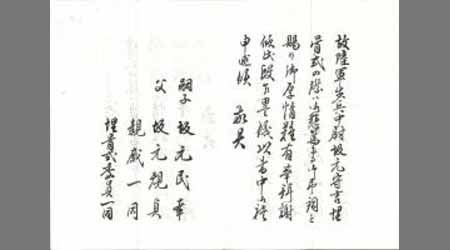 故陸軍歩兵中尉坂元守吉埋
骨式の際ハ御懇篤なる御弔詞を
賜り御厚情難有奉拝謝
候此段乍略儀以書中御禮
申述候 敬具
嗣子 坂元民幸
父 坂元親員
親戚一同
埋骨式委員一同